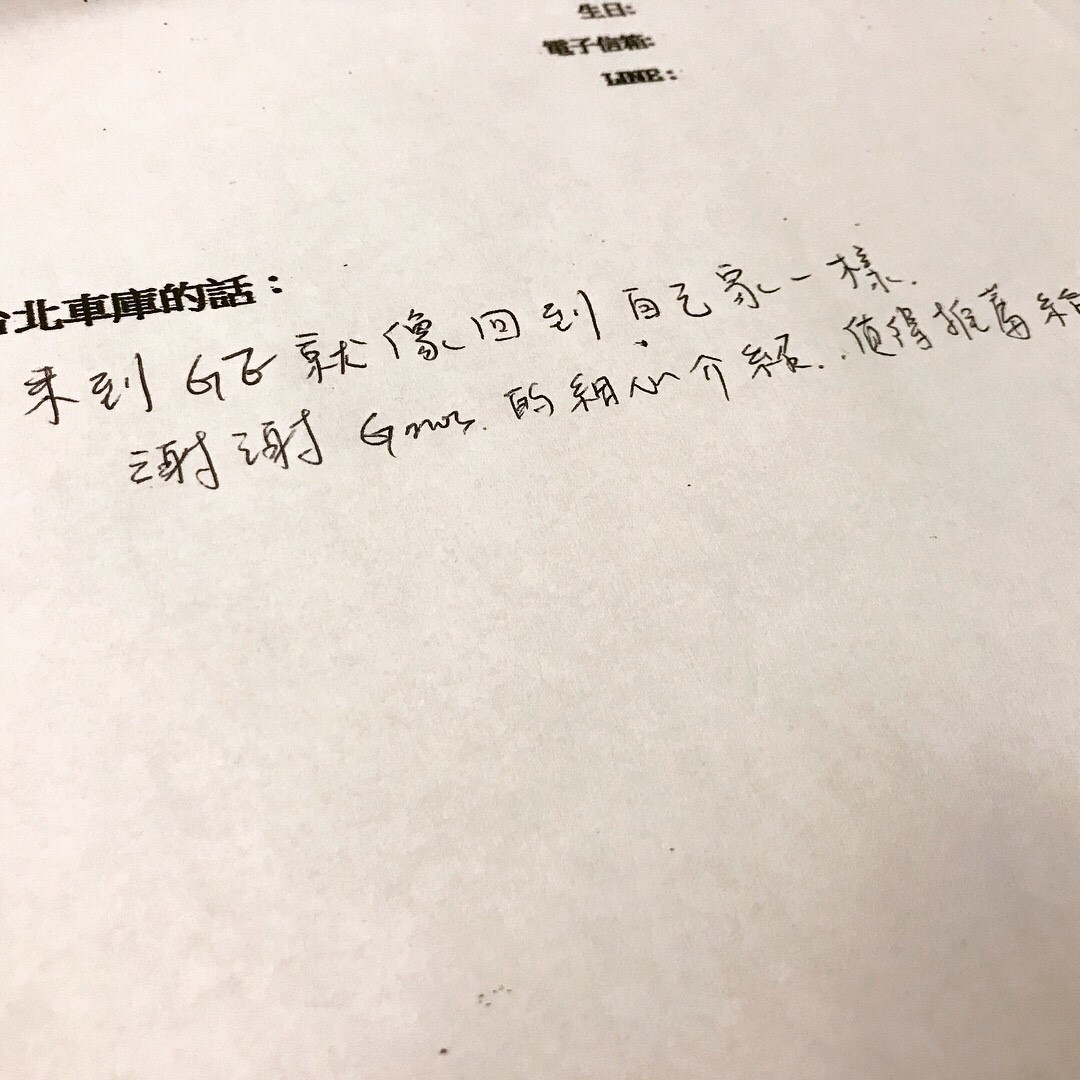 生日:
電子信箱:
LINE:
台北車庫的話：
來到 GE 就像回到自己家一樣.
謝謝 的細心介紹. 值得推薦給